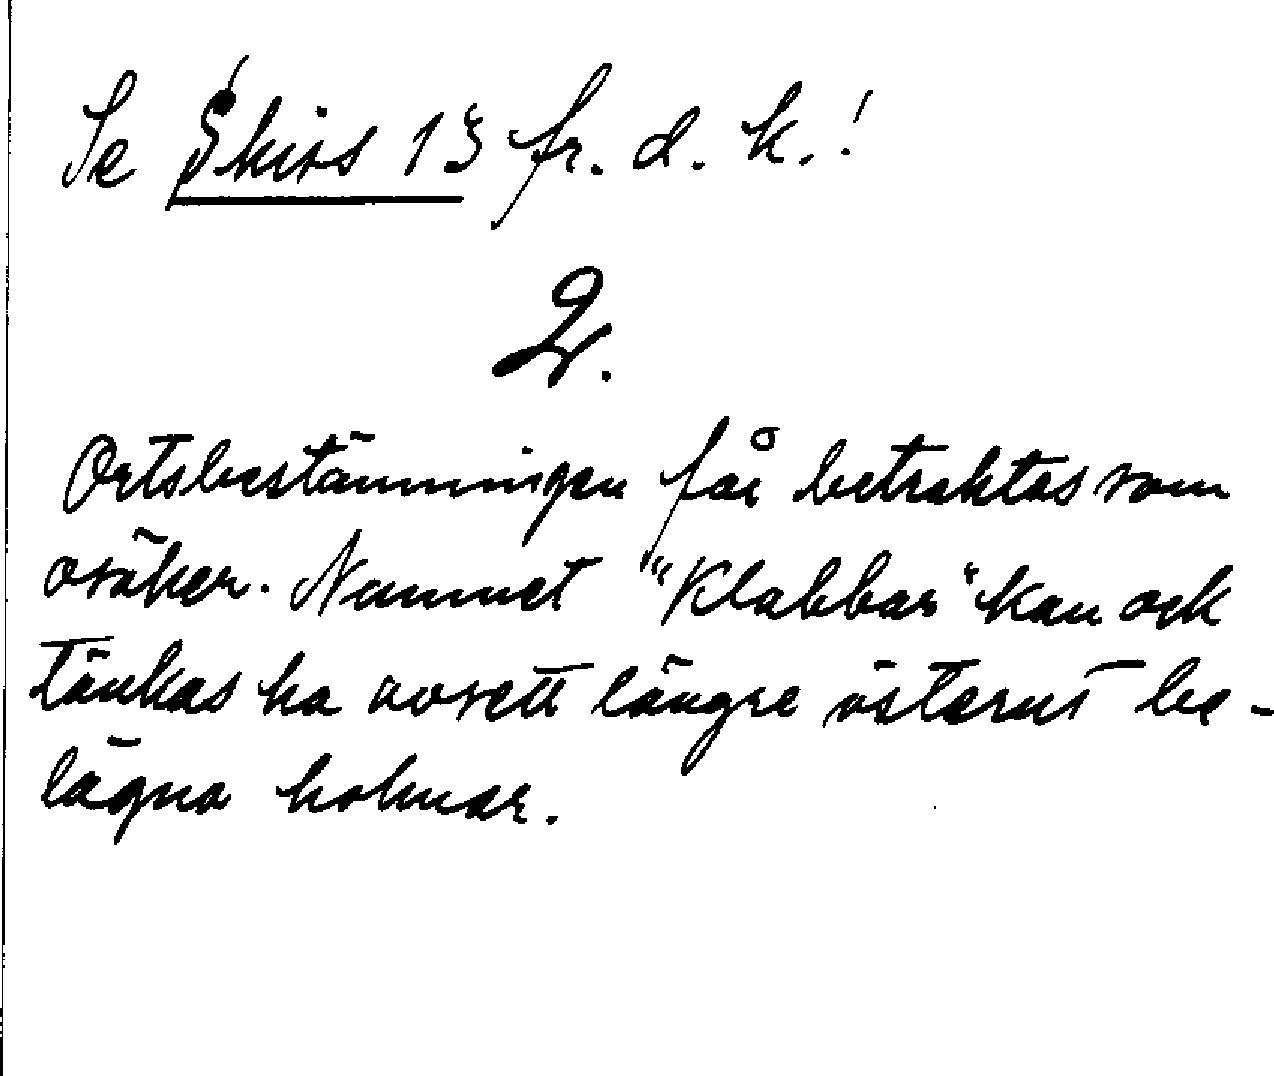 Se Skiss 13 fr. d. k.!
2.
Ortsbestämningen får betraktas som
osäker. Namnet "Klabbar" kan ock
tänkas ha avsett längre österut be-
lägna holmar.